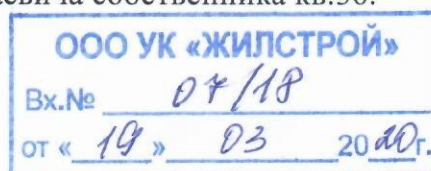 собственника кв.
ООО УК «ЖИЛСТРОЙ»
Вх.№ 07/18
от « 19 » 03 2020г.